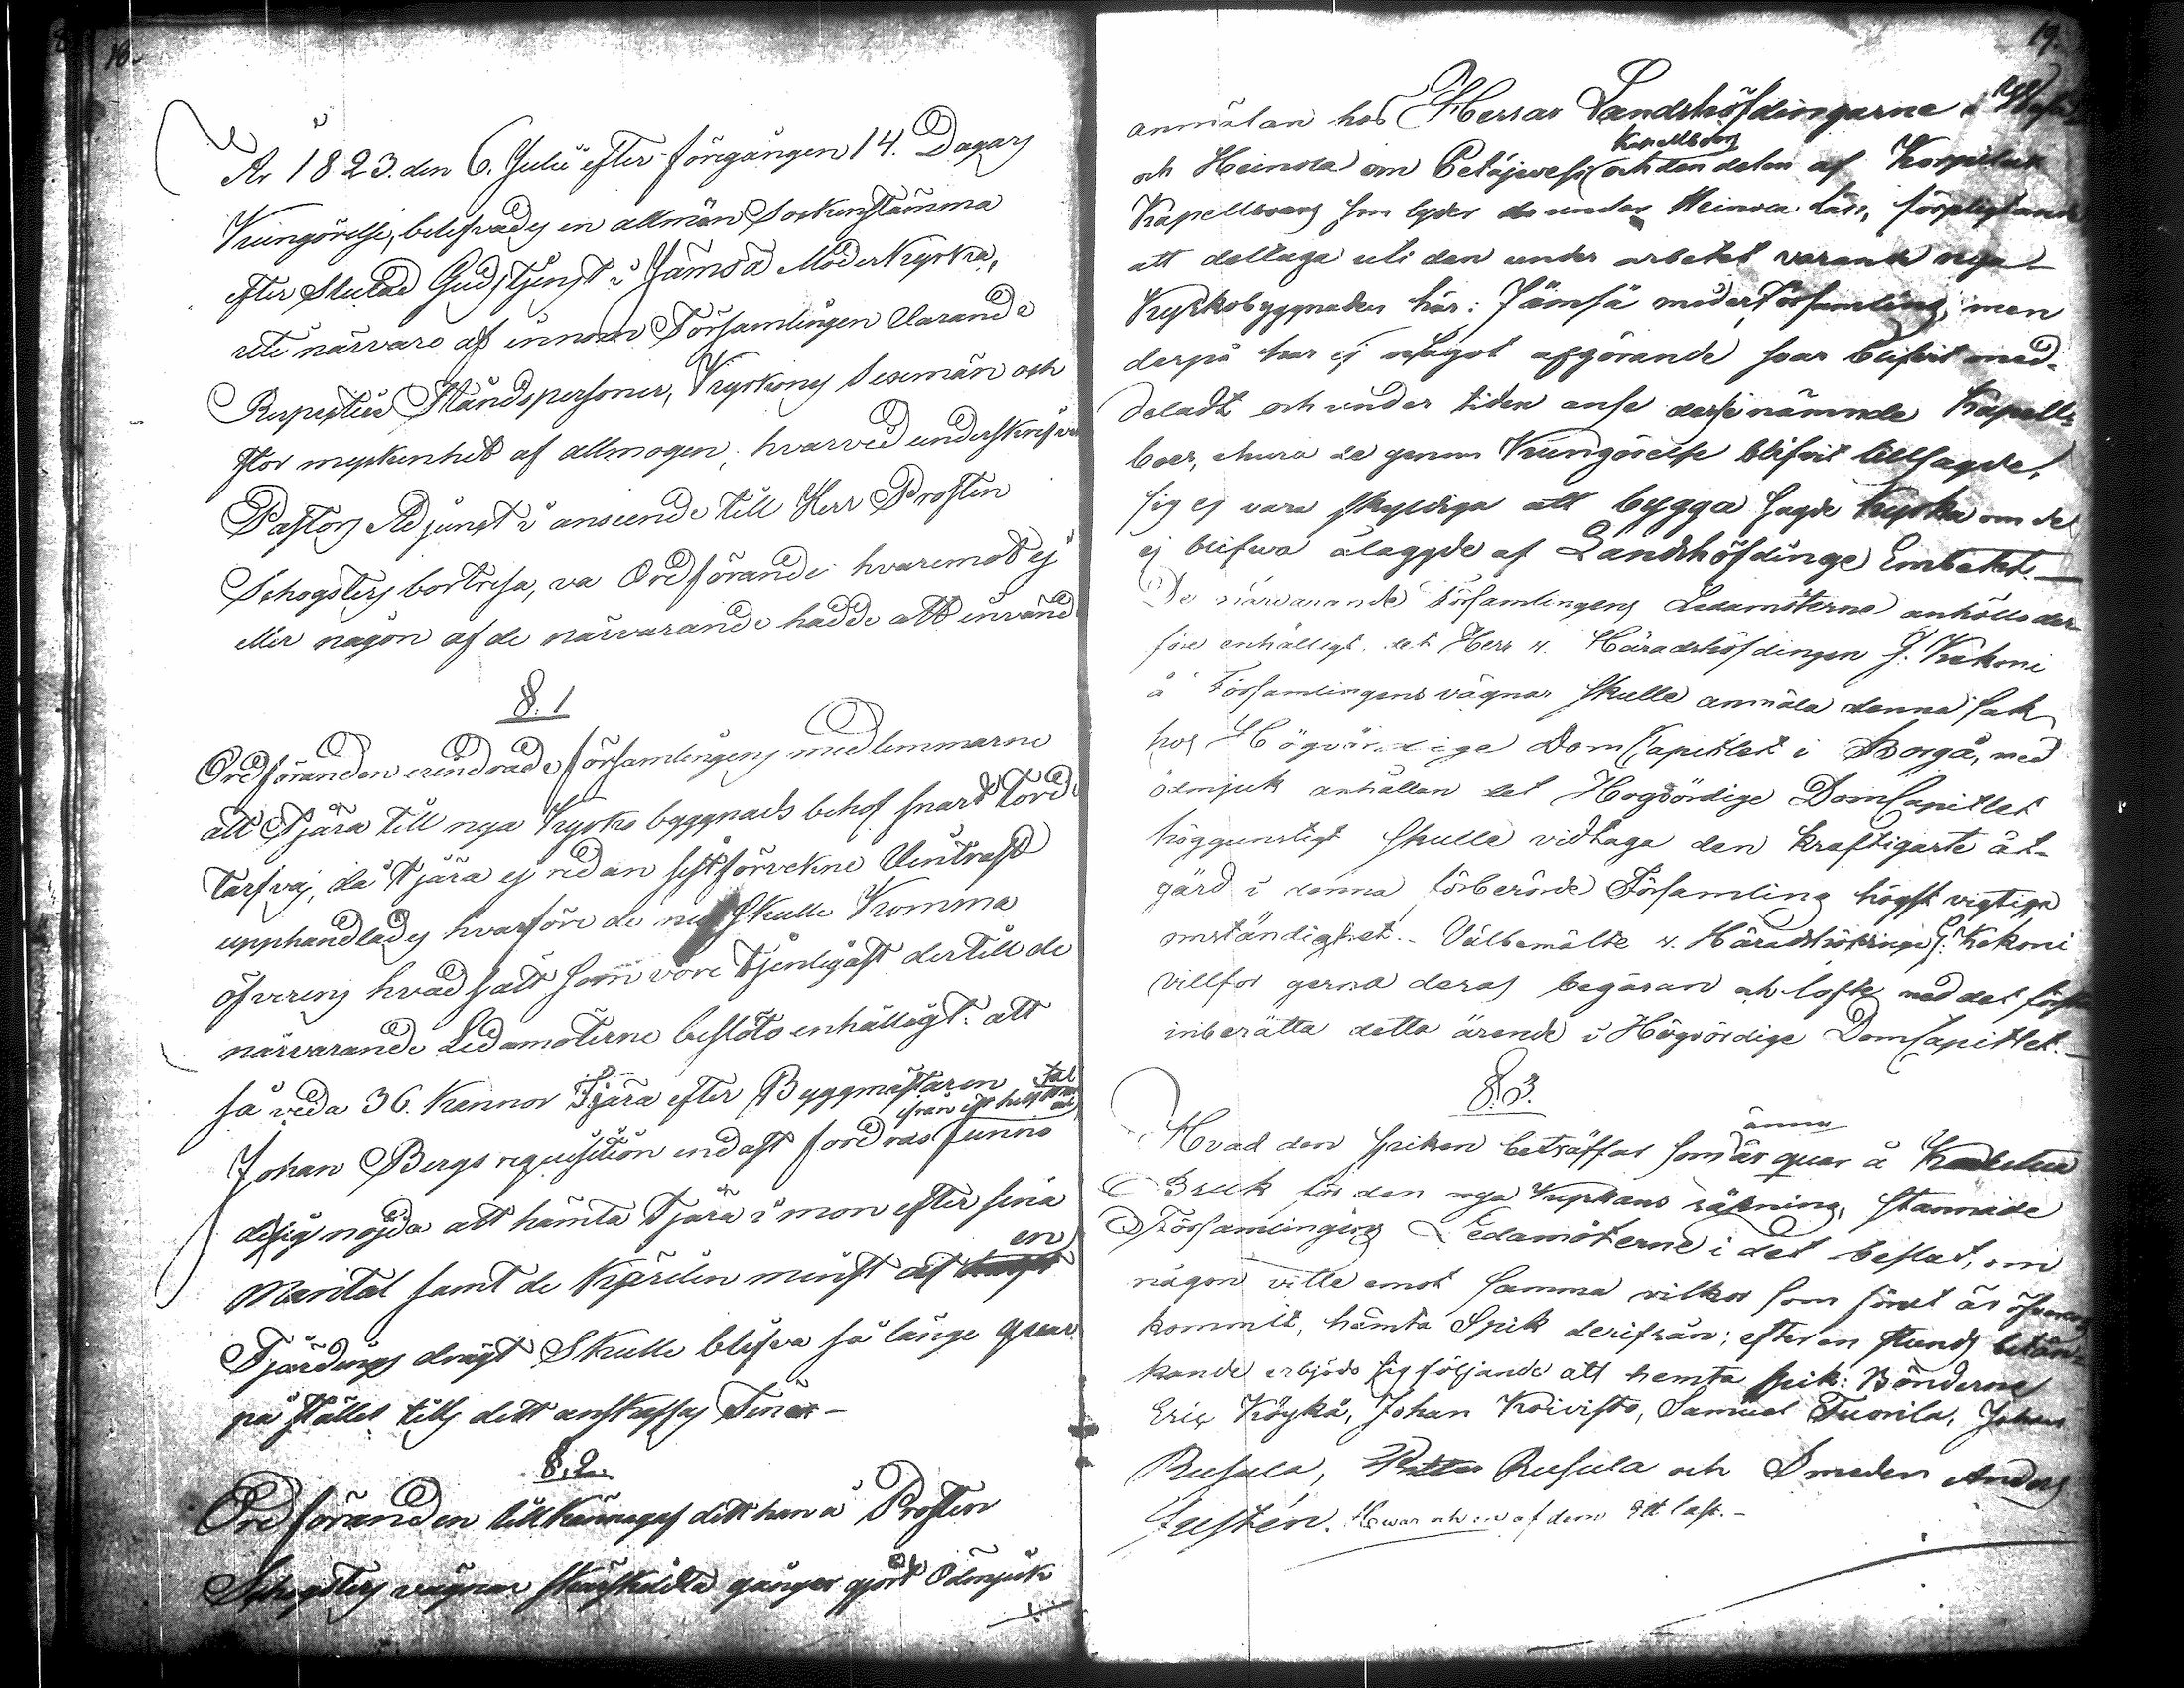 18.
År 1823. den 6. Julii efter föregången 14. Dagars
Kungörelse, blefvades en allmän Sockenstämma
efter Slutad Gudstjenst i Jämsä Moderkyrka,
uti närvaro af innom Församlingen Varande
Respective Ståndspersoner, Kyrkones Sexmän och
stor myckenhet af allmogen; hvarvid underskrifven
Pastors Adjunct i anseende till Herr Prosten
Schogsters bortresa, va Ordförande hvaremot ej
eller någon af de närvarande hadde att invända
§. 1
Ordföranden erindrade församlingens medlemmarne
att Tjära till nya Kyrko byggnads behof snart torde
tarfvas, då Tjära ej redan sistförvekne Vintras
upphandlades hvarföre de nu Skulle Komma
öfverens hvad sätt som vore Tjenligast dertill de
närvarande Ledamöterne beslöto enhälligt: att
så vida 36. Kannor Tjära efter Byggmästaren
Johan Bergs requisition endast fordras funno
de sig nöjda att hämta Tjära i mon efter sina
Mantal samt de Kjärilen minst af en
Tjärdings drägt Skulle blifva så länge quar
på stället tills dett anskaffas
§. 2.
Ordföranden tillkännagaf dett han å Prosten
Schogsters vägnar särskildta gånger gjort Ödmjuk
19.
anmälan hos Herrar Landshöfdingarne i
och Heinola om Petäjevesi Kapellboer och den delen af Korpilax
Kapellboers som lyder under Heinola Län, förpligtande
att deltaga uti den under arbetet varande nya
Kyrkobyggnaden här i Jämsä moder Församling, men
derpå har ej något afgörande svar blifvit med-
deladt och under tiden anse dessförinämnde Kapells
boer, ehura de genom Kungörelse blifvit tillsagde,
sig ej vara skyldiga att bygga sagde Kyrka om de
ej blifwa ålaggde af Landshöfdinge Embetet.—
De närvarande Församlingens Ledamöterne anhöllo der-
före enhälligt, det Herr v. Häradshöfdingen J. Kekoni
å Församlingens vägnar Skulle anmäla denna sak
hos Högvördige DomCapitlet i Borgå, med
ödmjuk anhållan det Högvördige DomCapitlet
höggunstigt Skulle vidtaga den kraftigaste åt-
gärd i denna förberörde Församling högst vigtiga
omständighet.. Välbemälte v. Häradshöfdinge J. Kekoni
villfor gerna deras begäran och lofte med det första
inberätta detta ärende i Högvördige DomCapitlet.—
§. 3.
Hvad den spiken beträffar som ännu är quar å
Bruk för den nya Kyrkans räkning, stannade
Församlingens Ledamöterne i det beslut, om
någon ville emot samma vilkor som förut är öfverens
kommit, hämta Spik derifrån; efter en stunds betän-
kande erbjödo sig följande att hemta spik: Bönderne
Eric Köykä, Johan Koivisto, Samuel Tuomila, Johan
Rusula, Rusula och Smeden Anders
Justén. Hwar och en af dem ett lass.—